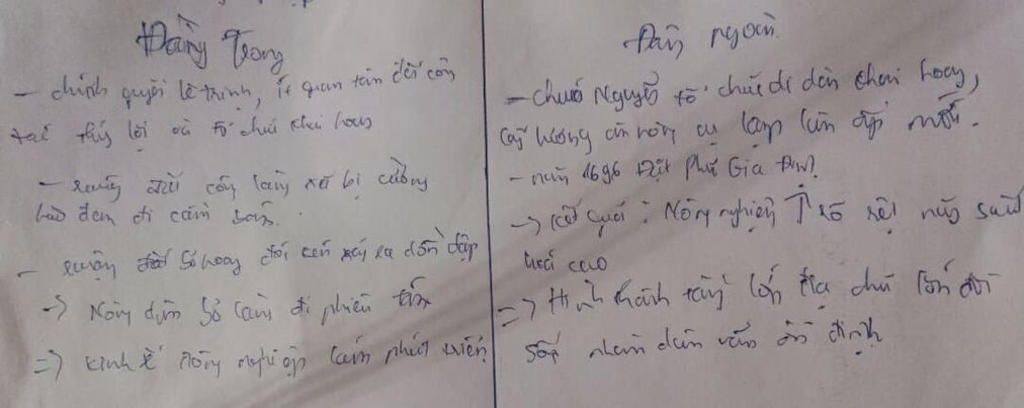 Đàng Trong
- chính quyền Lê Trịnh, ít quan tâm đến công
tác thủy lợi và tổ chức khai hoang
- ruộng đất công làng xã bị cường
hào đem đi cầm bán.
- ruộng đất bỏ hoang đói kém xảy ra dồn dập
-> Nông dân bỏ làng đi phiêu tán
=> kinh tế nông nghiệp phát triển
Đàng ngoài
- chúa Nguyễn tổ chức di dân khai hoang,
cấp lương ăn nông cụ lập làng ấp mới.
- năm 1698 Đặt Phủ Gia Định
-> kết quả: Nông nghiệp ↑ rõ rệt năng suất
lúa cao
=> Hình thành tầng lớp địa chủ lớn đời
sống nhân dân vẫn ổn định